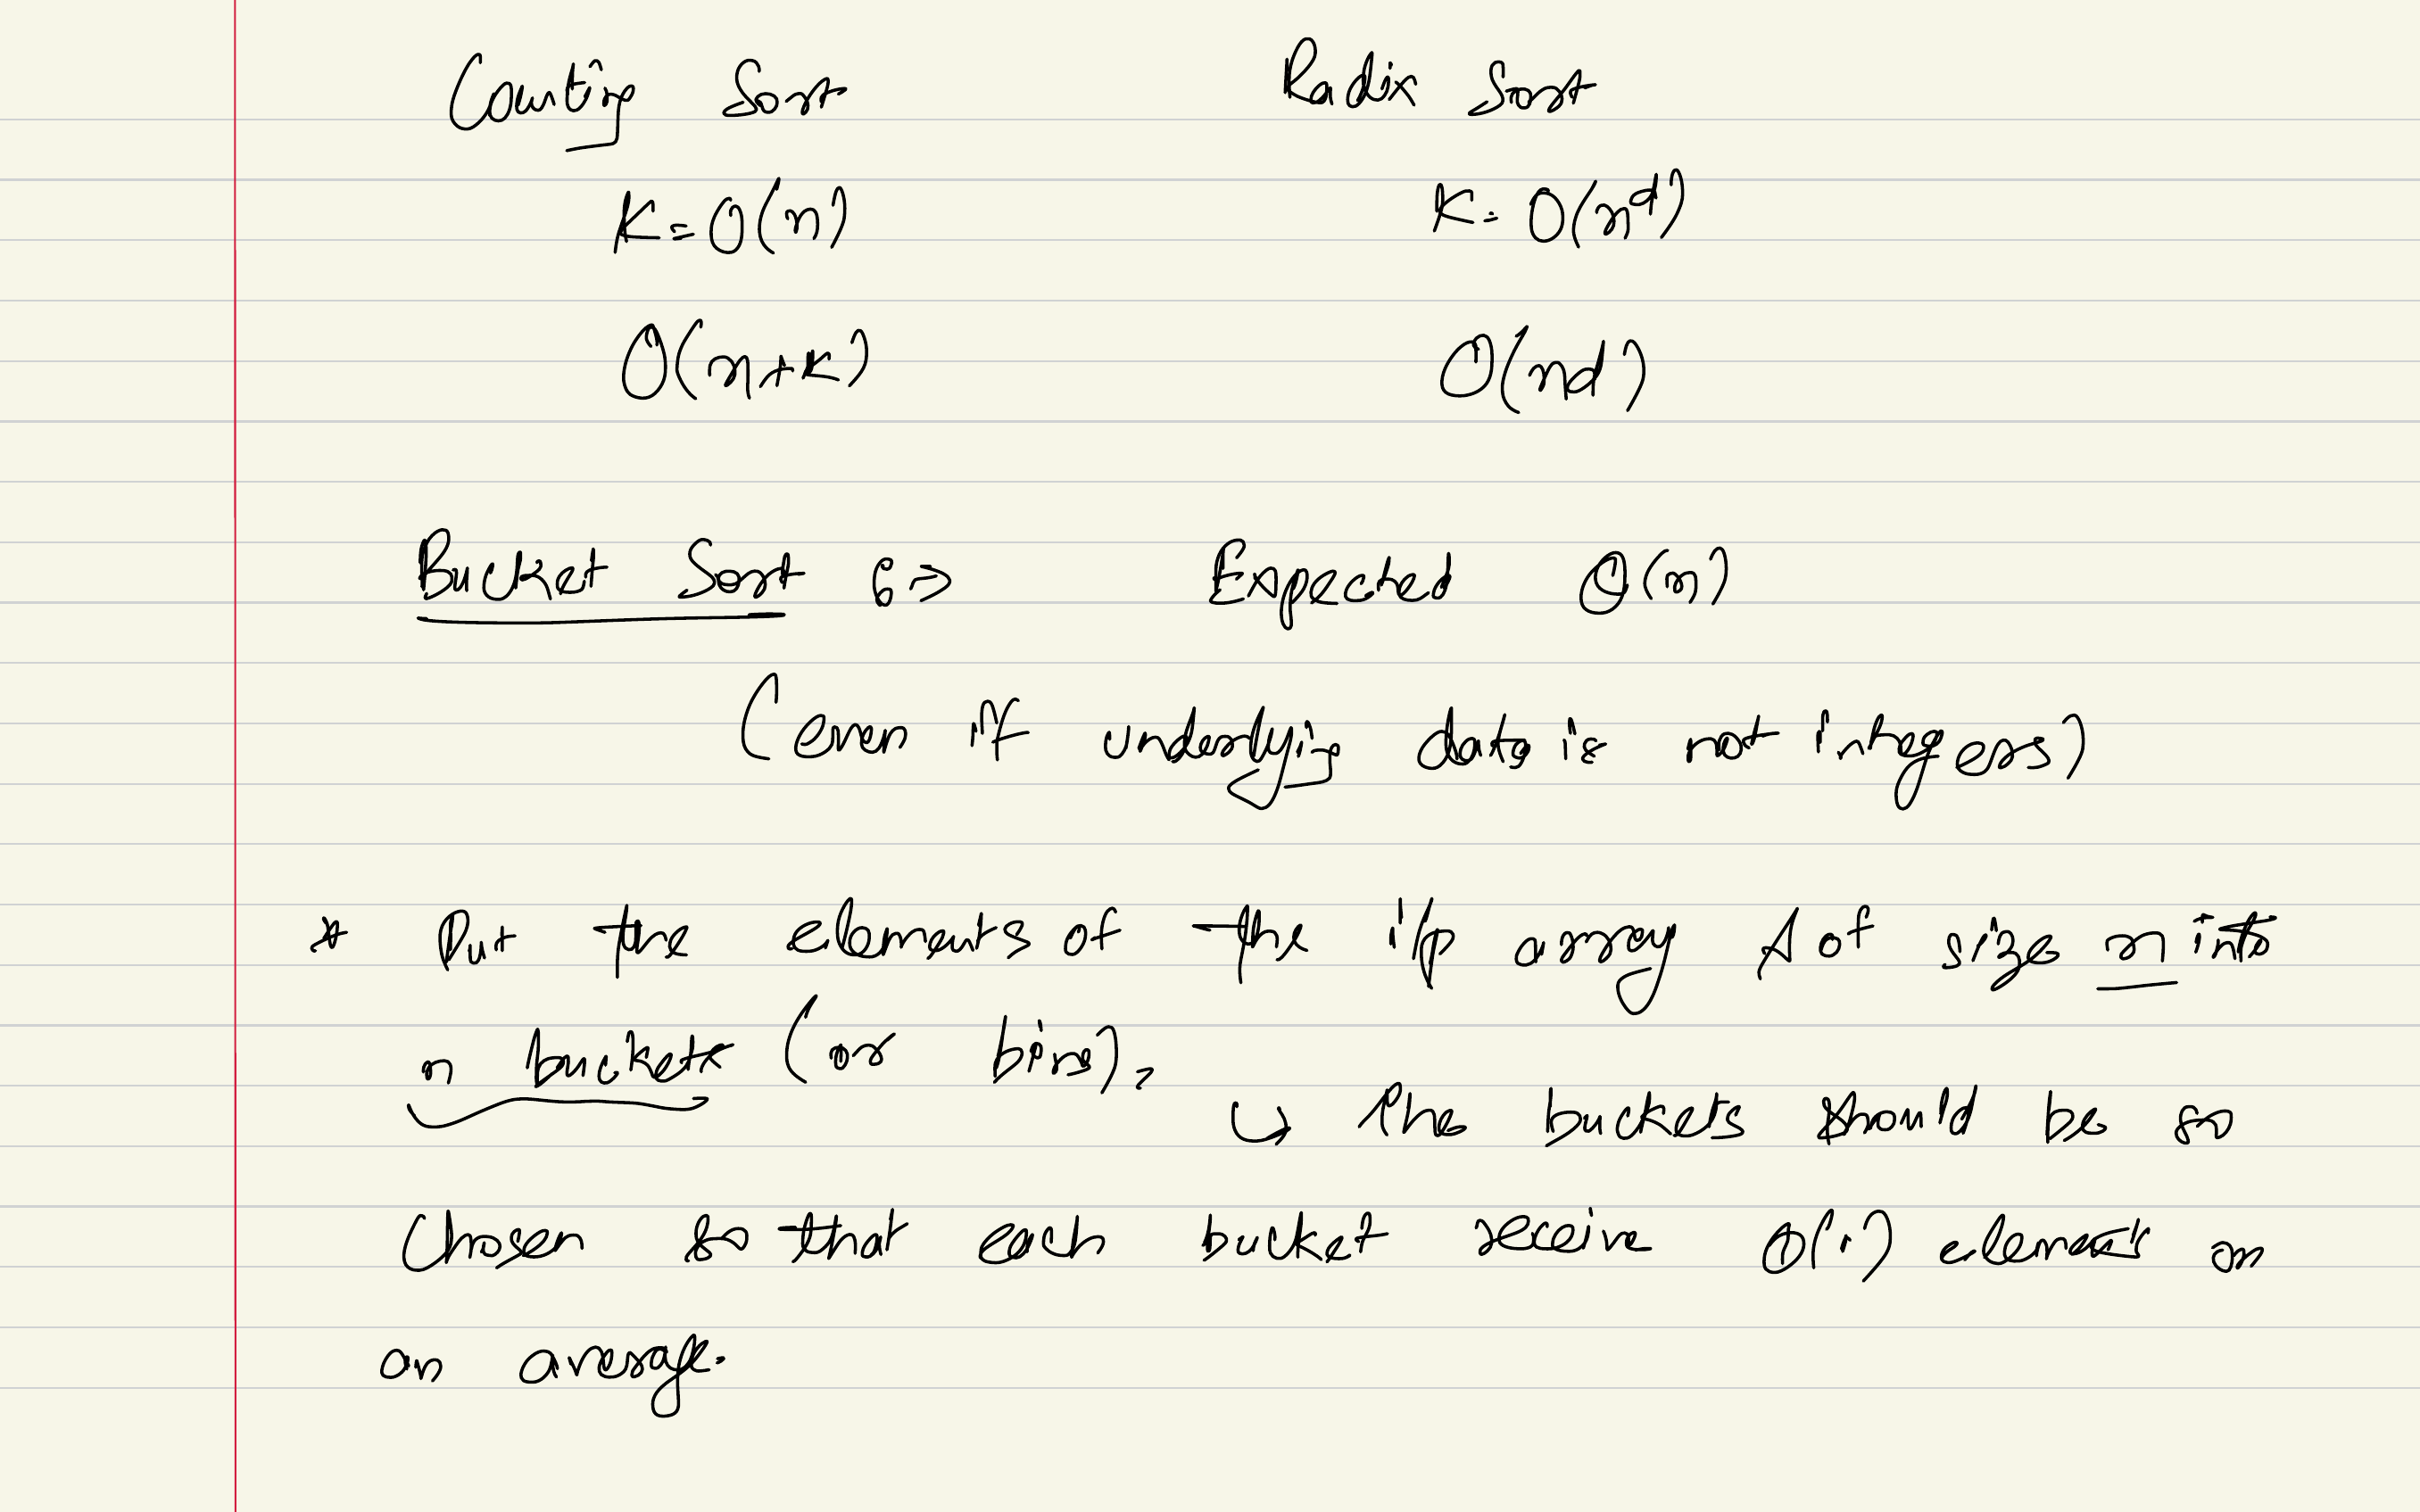 Counting Sort Radix Sort
K = O(n) K = O(n^d)
O(n+K) O(nd)
Bucket Sort :=> Expected O(n)
(even if underlying data is not integers)
* Put the elements of the i/p array A of size n into
n buckets (or bins).
↳ The buckets should be so
chosen so that each bucket receive O(1) elements on
an average.